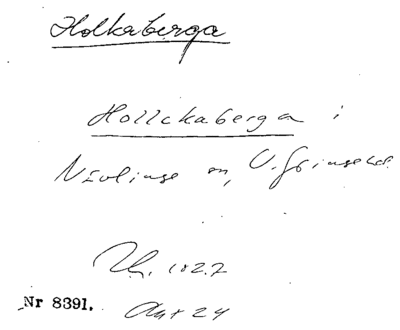 Holkaberga
Hollckaberga i
Nävlinge sn, V. Göinge hd.
Th. 1827
Nr 8391. Akt 24